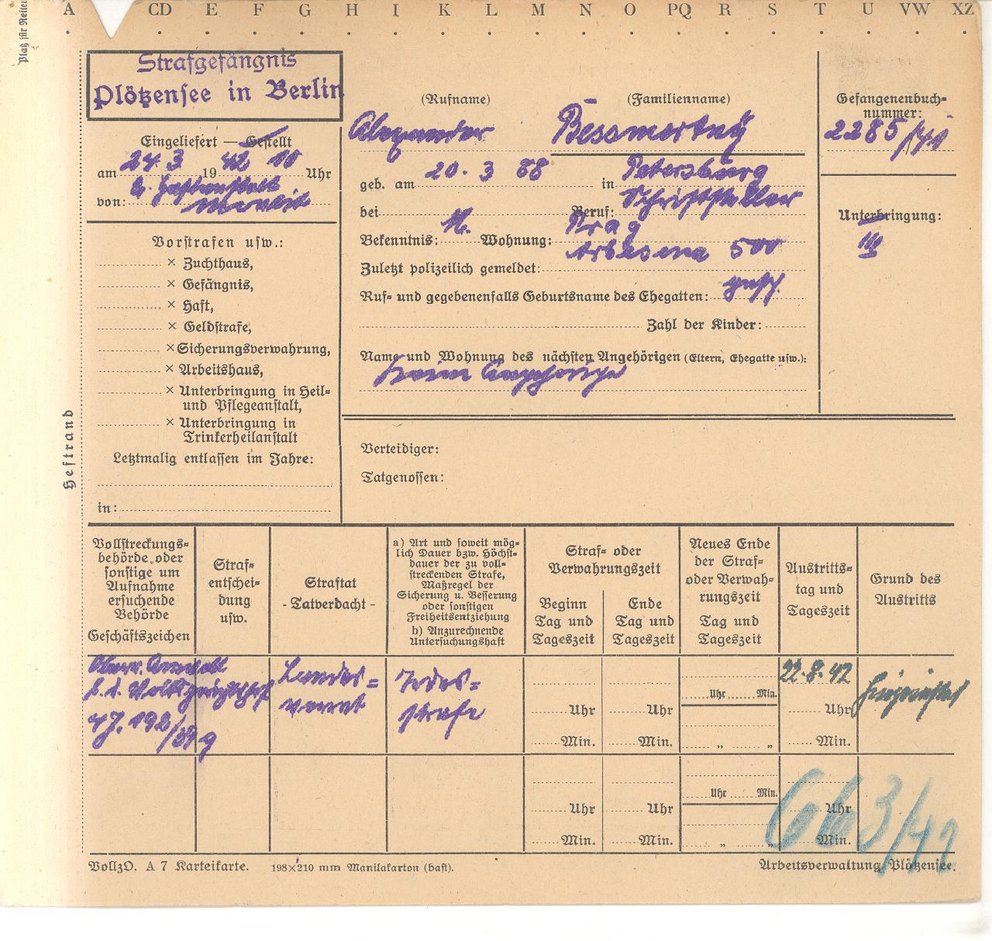 Platz für Reiter
A CD E F G H I K L M N O PQ R S T U VW XZ
Strafgefängnis
Plötzensee in Berlin
Eingeliefert — Gestellt
am 24. 3. 1942 10 Uhr
von: U. Haftanstalt
Moabit
Vorstrafen usw.:
× Zuchthaus,
× Gefängnis,
× Haft,
× Geldstrafe,
× Sicherungsverwahrung,
× Arbeitshaus,
× Unterbringung in Heil-
und Pflegeanstalt,
× Unterbringung in
Trinkerheilanstalt
Letztmalig entlassen im Jahre:
in:
Heftrand
(Rufname) (Familienname)
Alexander Bessmertny
geb. am 20. 3 88 in Petersburg
bei Beruf: Schriftsteller
Bekenntnis: K. Wohnung: Prag
Arbesma 500
Zuletzt polizeilich gemeldet:
Ruf- und gegebenenfalls Geburtsname des Ehegatten: gesch
Zahl der Kinder:
Name und Wohnung des nächsten Angehörigen (Eltern, Ehegatte usw.):
keine Angehörige
Gefangenenbuch-
nummer:
2285/41
Unterbringung:
III
Verteidiger:
Tatgenossen:
Vollstreckungs-
behörde oder
sonstige um
Aufnahme
ersuchende
Behörde
Geschäftszeichen
Straf-
entschei-
dung
usw.
Straftat
- Tatverdacht -
a) Art und soweit mög-
lich Dauer bzw. Höchst-
dauer der zu voll-
streckenden Strafe,
Maßregel der
Sicherung u. Besserung
oder sonstigen
Freiheitsentziehung
b) Anzurechnende
Untersuchungshaft
Straf- oder
Verwahrungszeit
Beginn
Tag und
Tageszeit
Ende
Tag und
Tageszeit
Neues Ende
der Straf-
oder Verwah-
rungszeit
Tag und
Tageszeit
Austritts-
tag und
Tageszeit
Grund des
Austritts
Oberr. Anwalt
b. d. Volksgerichtshof
7 J. 192/39g
Landes=
verrat
Todes=
strafe
Uhr
Min.
Uhr
Min.
Uhr Min.
" "
22.8.42
Uhr
Min.
hingerichtet
Uhr
Min.
Uhr
Min.
Uhr Min.
" "
Uhr
Min.
663/42
VollzO. A 7 Karteikarte. 198×210 mm Manilakarton (bast).
Arbeitsverwaltung Plötzensee.